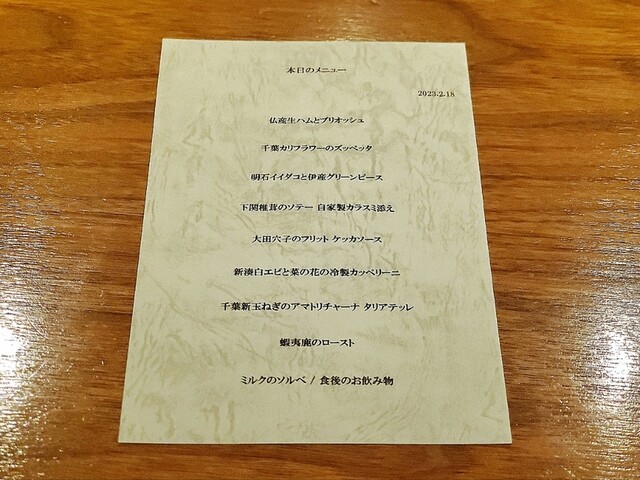 本日のメニュー
2023.2.18
仏産生ハムとブリオッシュ
千葉カリフラワーのズッペッタ
明石イイダコと伊産グリーンピース
下関椎茸のソテー 自家製カラスミ添え
大田穴子のフリット ケッカソース
新湊白エビと菜の花の冷製カッペリーニ
千葉新玉ねぎのアマトリチャーナ タリアテッレ
蝦夷鹿のロースト
ミルクのソルベ / 食後のお飲み物